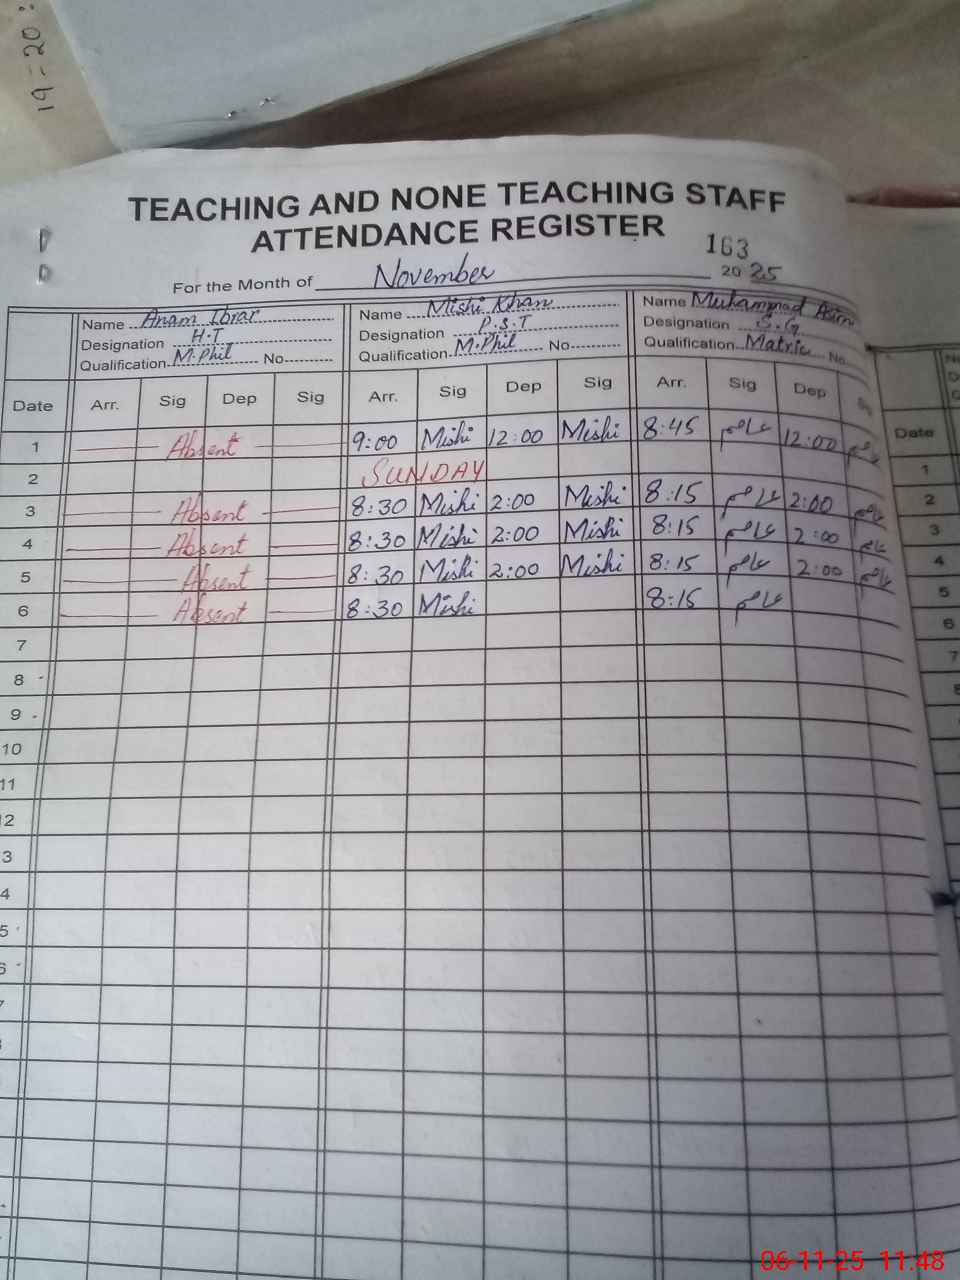 19=20:
TEACHING AND NONE TEACHING STAFF
ATTENDANCE REGISTER
163
For the Month of November 2025
Name Anam Ibrar
Designation H.T
Qualification M.Phil No
Name Mishi Khan
Designation P.S.T
Qualification M.Phil No
Name Muhammad Asim
Designation S.G
Qualification Matric No
Date Arr. Sig Dep Sig Arr. Sig Dep Sig Arr. Sig Dep Sig
1 Absent 9:00 Mishi 12:00 Mishi 8:45 عاصم 12:00 عاصم
2 SUNDAY
3 Absent 8:30 Mishi 2:00 Mishi 8:15 عاصم 2:00 عاصم
4 Absent 8:30 Mishi 2:00 Mishi 8:15 عاصم 2:00 عاصم
5 Absent 8:30 Mishi 2:00 Mishi 8:15 عاصم 2:00 عاصم
6 Absent 8:30 Mishi 8:15 عاصم
7
8
9
10
11
12
3
4
5
6
7
Date
1
2
3
4
5
6
7
06-11-25 11:48